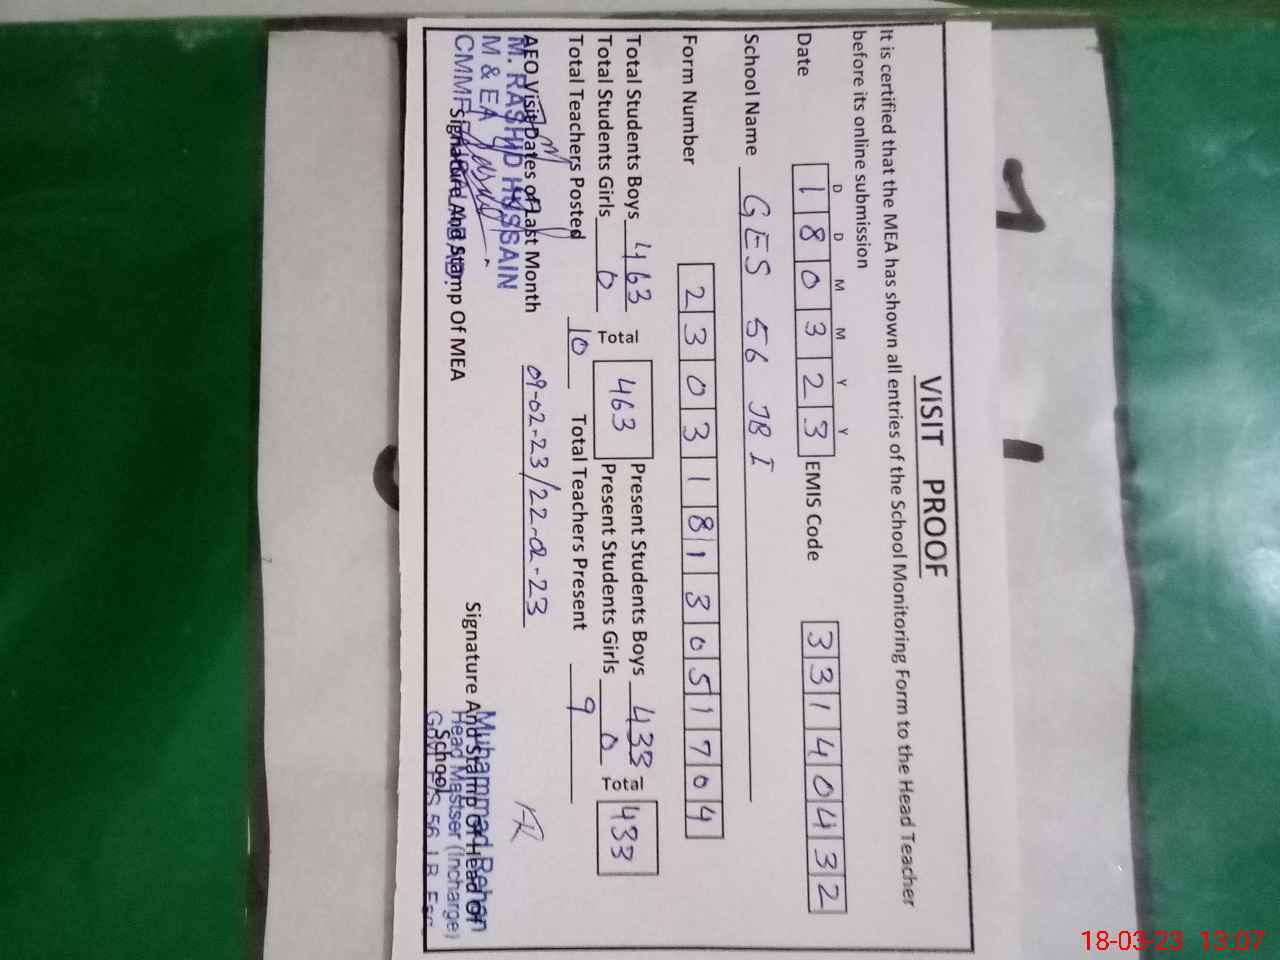 VISIT PROOF
It is certified that the MEA has shown all entries of the School Monitoring Form to the Head Teacher
before its online submission
D D M M Y Y
Date 1 8 0 3 2 3 EMIS Code 3 3 1 4 0 4 3 2
School Name GES 56 JB I
Form Number 2 3 0 3 1 8 1 3 0 5 1 7 0 4
Total Students Boys 463 Total 463 Present Students Boys 433 Total 433
Total Students Girls 0 Present Students Girls 0
Total Teachers Posted 10 Total Teachers Present 9
AEO Visit Dates of Last Month 09-02-23/22-02-23
M. RASHID HUSSAIN
M & EA
CMMF
Signature And Stamp Of MEA
Signature And Stamp Of Head Of
School
Muhammad Rehan
Head Mastser (Incharge)
56 J.B
18-03-23 13:07